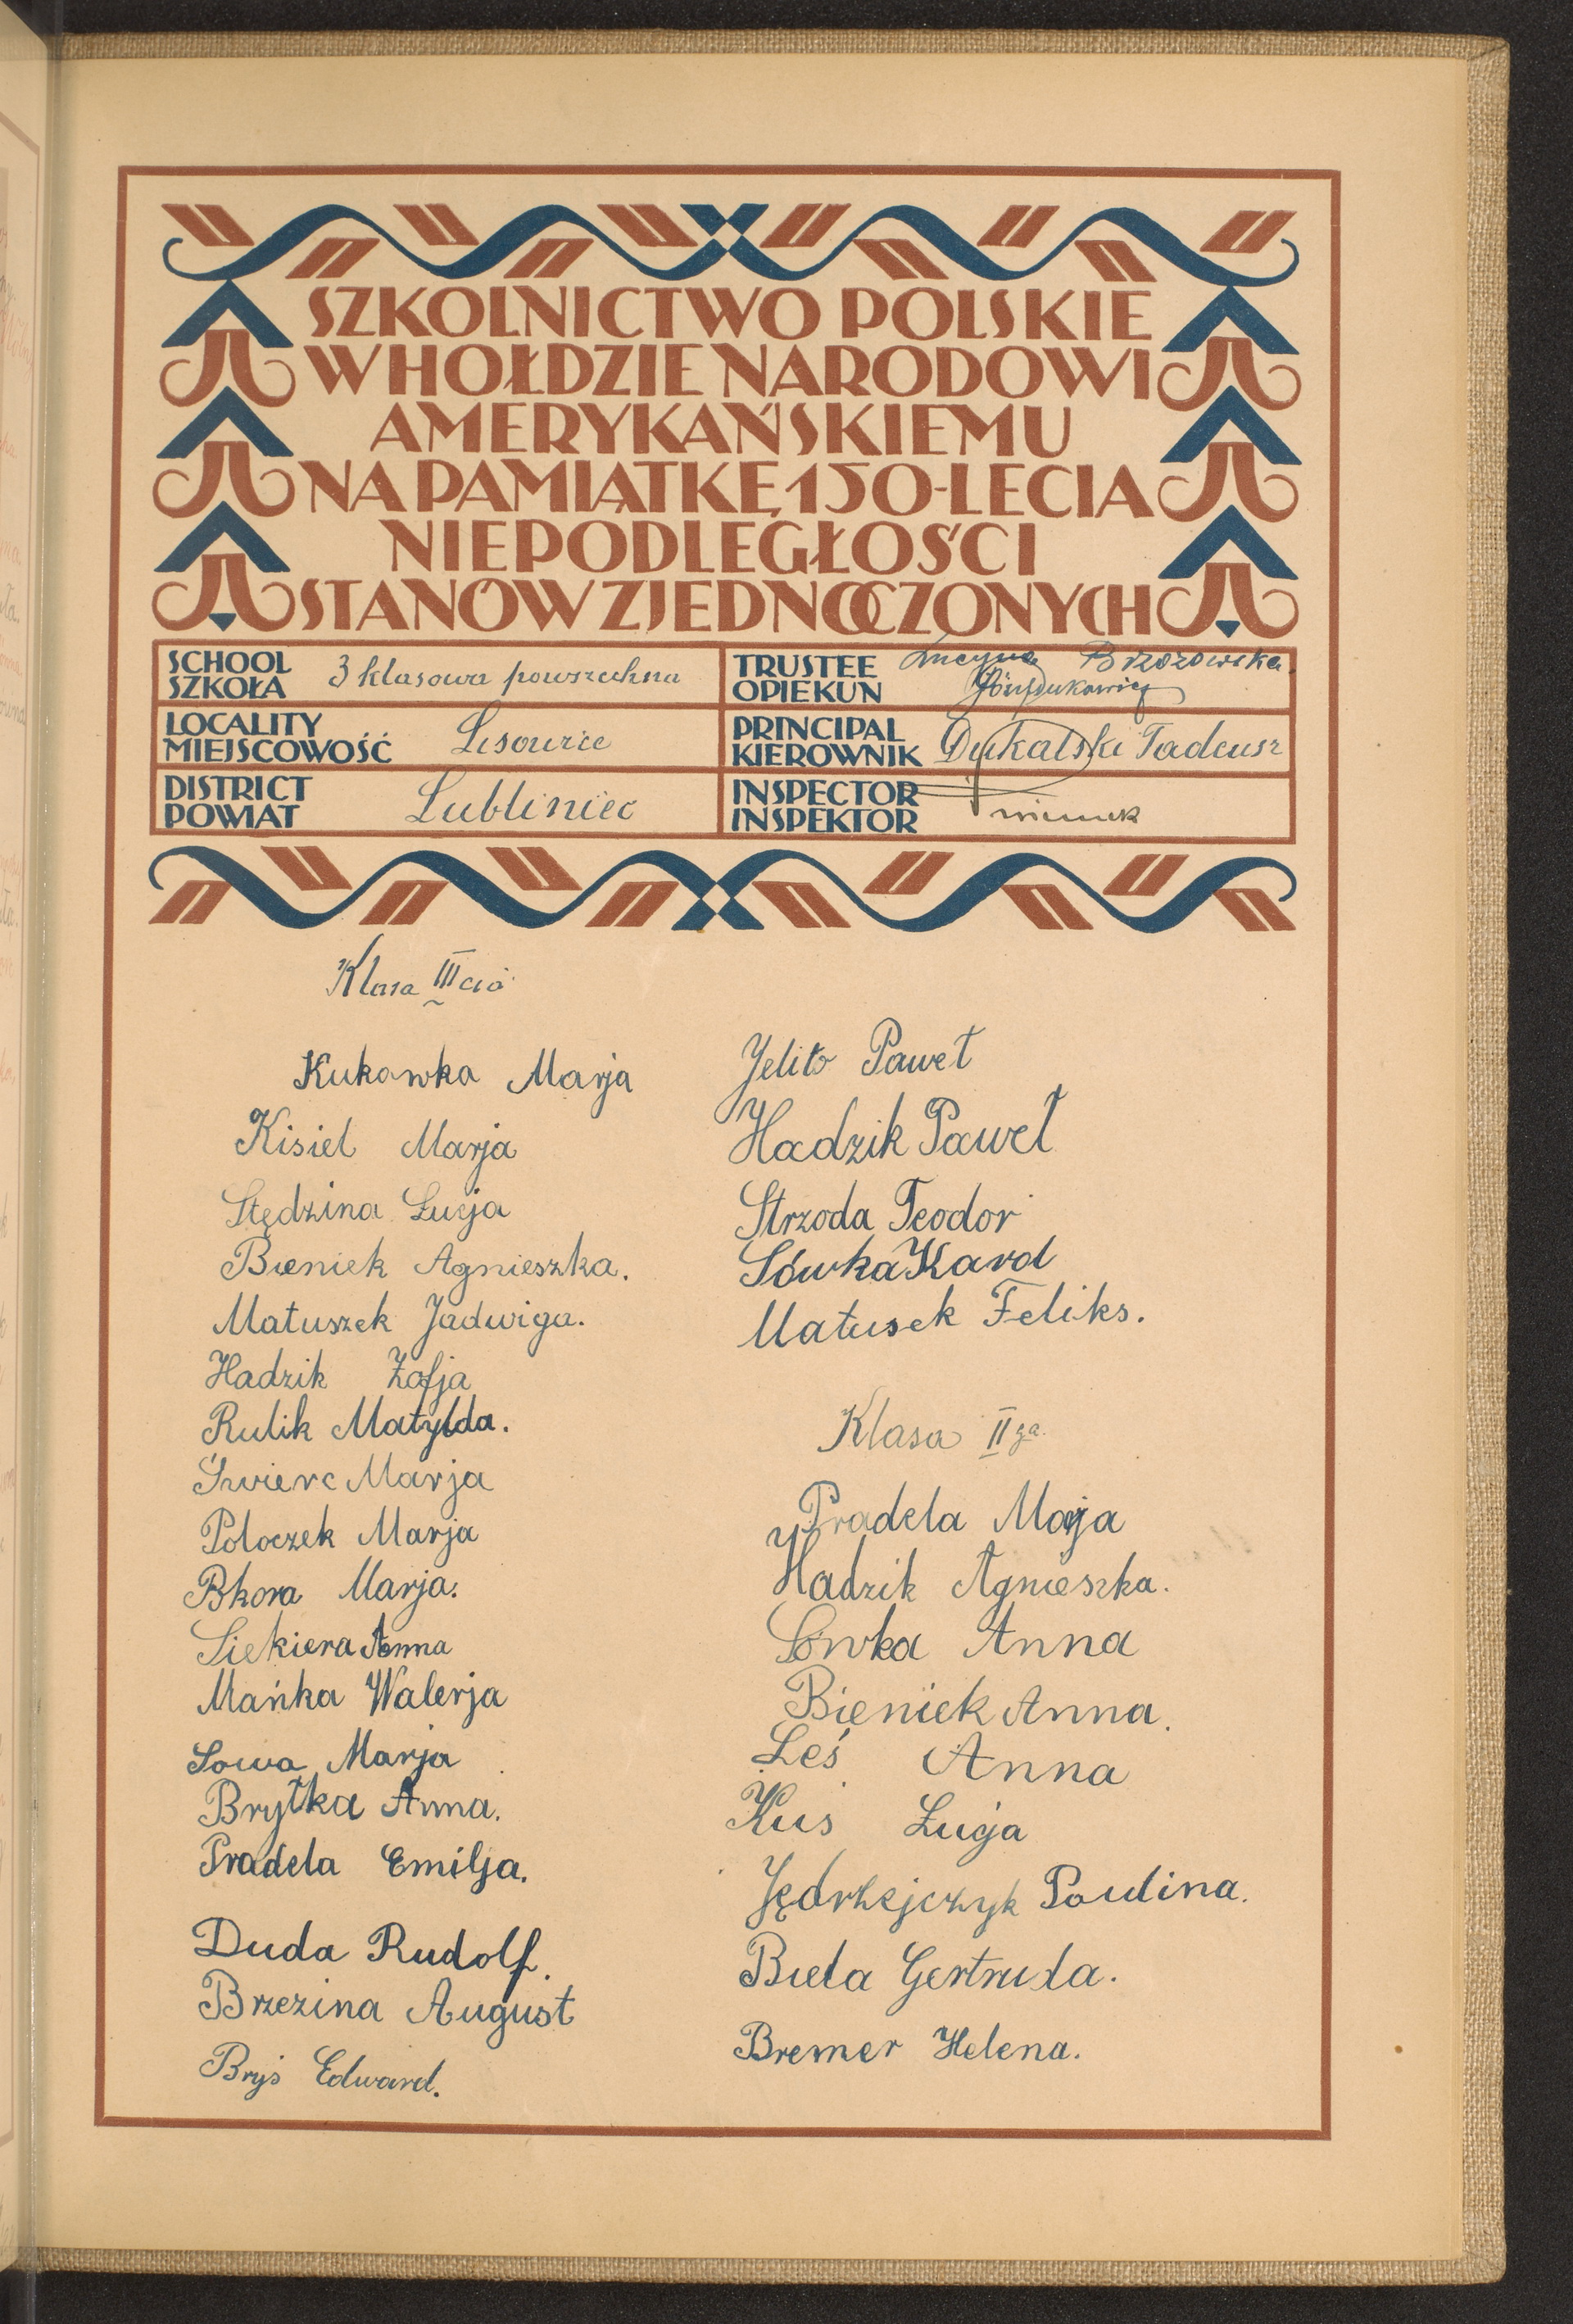 SZKOLNICTWO POLSKIE
W HOŁDZIE NARODOWI
AMERYKAŃSKIEMU
NA PAMIĄTKĘ 150-LECIA
NIEPODLEGŁOŚCI
STANÓW ZJEDNOCZONYCH
SCHOOL
SZKOŁA
3 klasowa powszechna
TRUSTEE
OPIEKUN
Lucyna Brzozowska.
LOCALITY
MIEJSCOWOŚĆ
Lisowice
PRINCIPAL
KIEROWNIK
Dukalski Tadeusz
DISTRICT
POWIAT
Lubliniec
INSPECTOR
INSPEKTOR
Klasa III cia
Kukawka Marja
Kisiel Marja
Stędzina Łucja
Bieniek Agnieszka.
Matuszek Jadwiga.
Hadzik Zofja
Rulik Matylda.
Świerc Marja
Poloczek Marja
Marja.
Siekiera Anna
Mańka Walerja
Sowa Marja
Brytka Anna.
Pradela Emilja.
Duda Rudolf.
Brzezina August
Bryś Edward.
Jelito Paweł
Hadzik Paweł
Strzoda Teodor
Sówka Karol
Matusek Feliks.
Klasa II ga.
Pradela Marja
Hadzik Agnieszka.
Sówka Anna
Bieniek Anna.
Leś Anna
Kuś Łucja
Jędrzejczyk Paulina.
Biela Gertruda.
Bremer Helena.